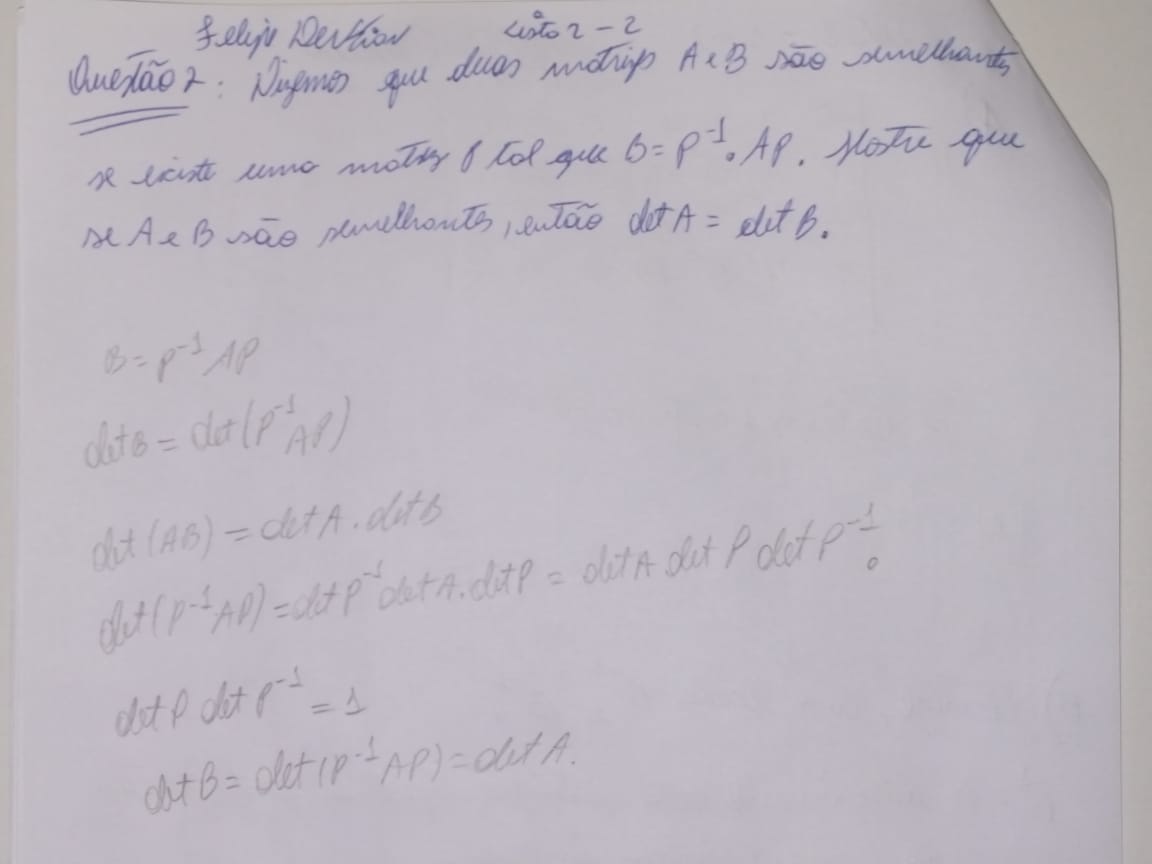 Felipe Lista 2 - 2
Questão 2: Dizemos que duas matrizes A e B são semelhantes
se existe uma matriz P tal que B = P⁻¹.AP. Mostre que
se A e B são semelhantes, então det A = det B.
B = P⁻¹ AP
det B = det (P⁻¹ AP)
det (AB) = det A . det B
det (P⁻¹ AP) = det P⁻¹ det A . det P = det A det P det P⁻¹.
det P det P⁻¹ = 1
det B = det (P⁻¹ AP) = det A.